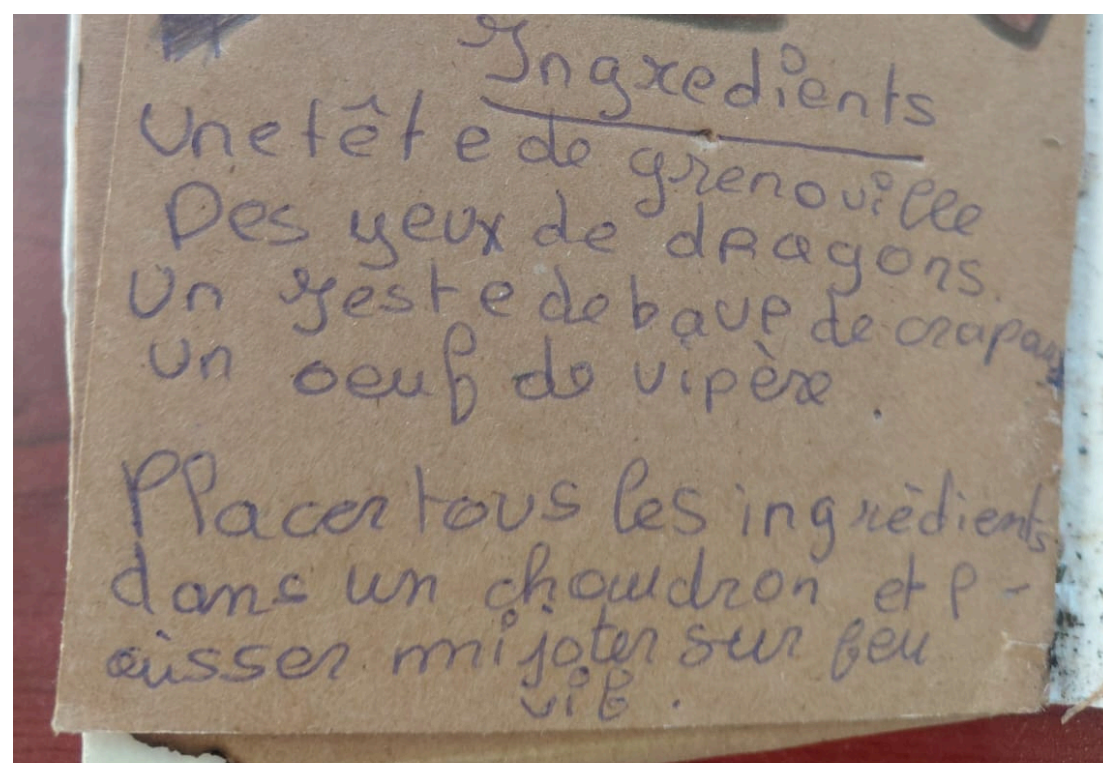 Ingredients
Une tête de grenouille
Des yeux de dragons.
Un zeste de bave de crapaux
Un oeuf de vipère.
Placer tous les ingrèdients
dans un chaudron et l-
aisser mijoter sur feu
vif.